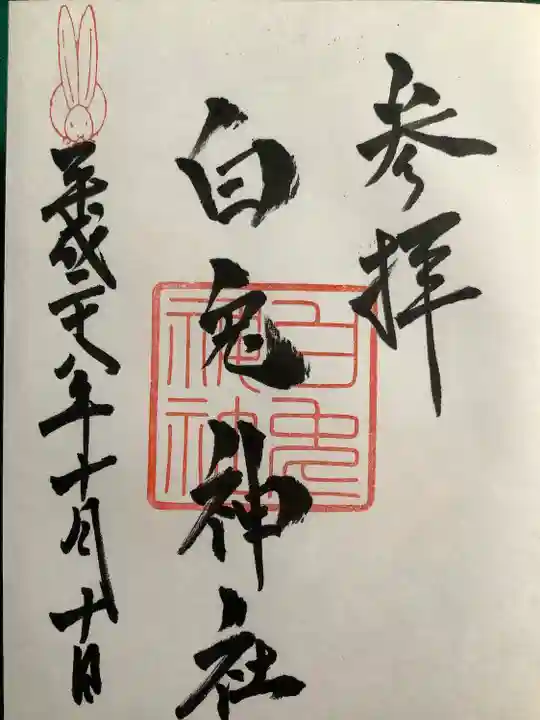 参拝
白兎神社
白兎神社
平成二十八年十月十日